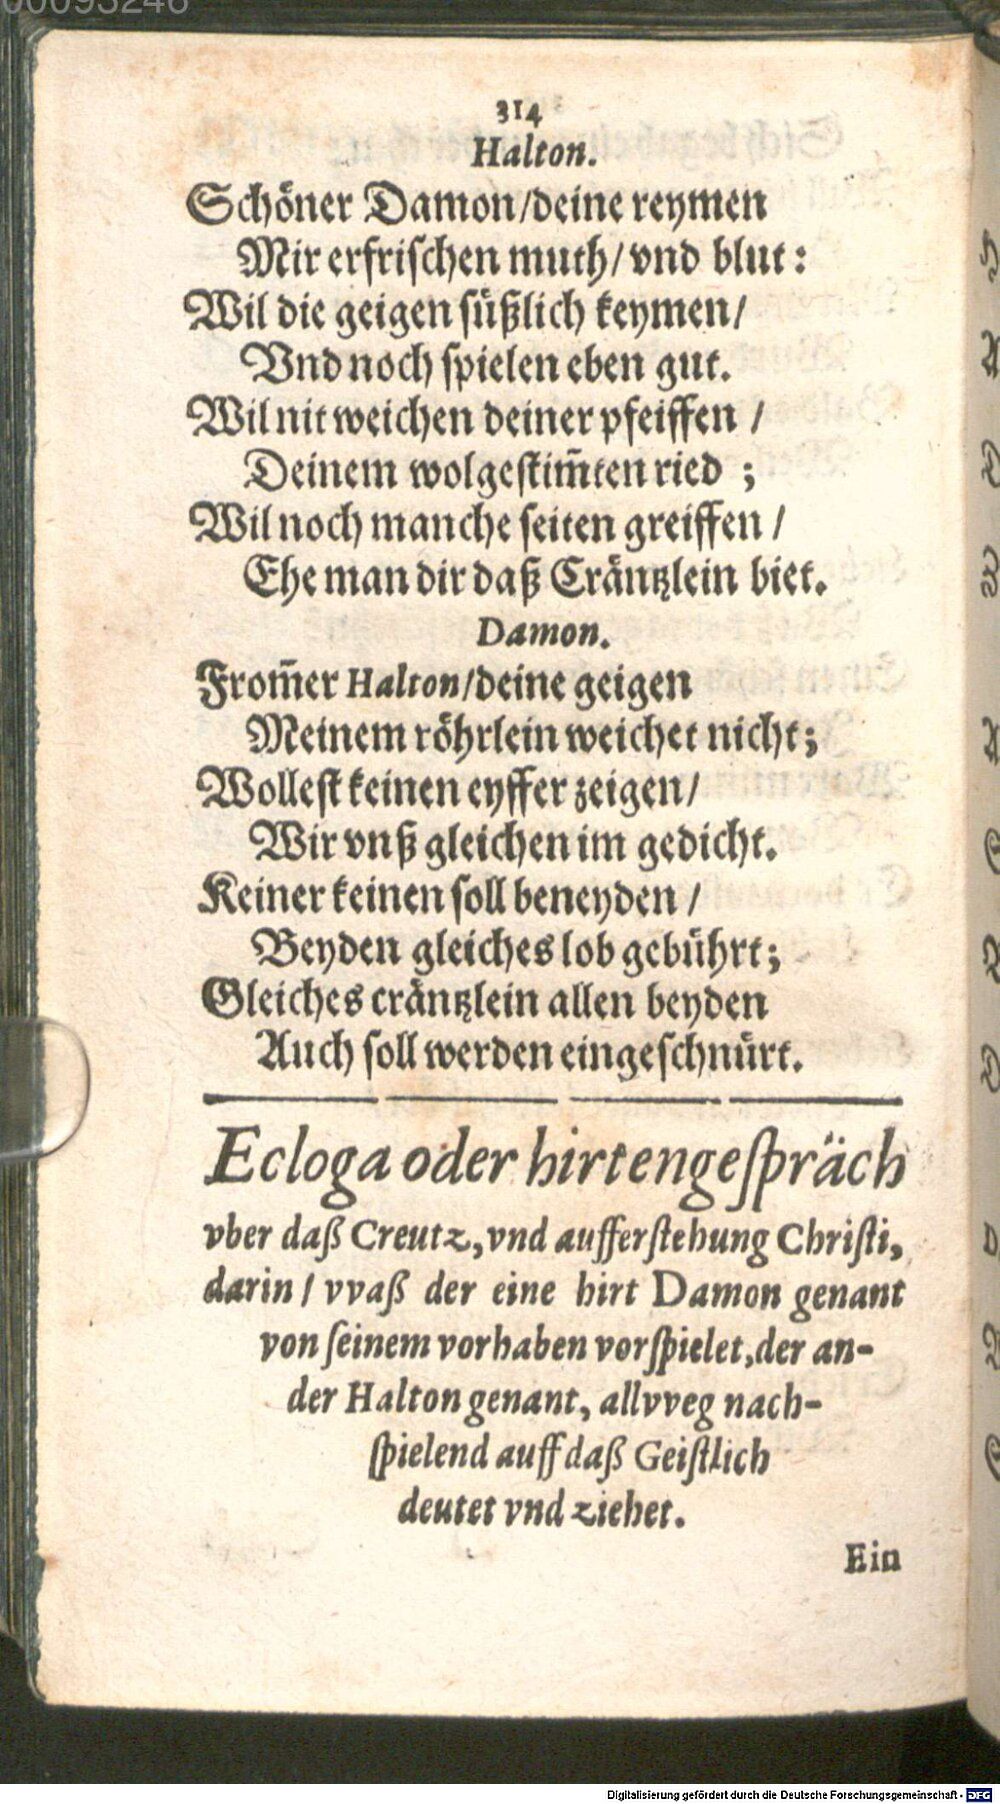 00093246
314
Halton.
Schöner Damon/deine reymen
Mir erfrischen muth/vnd blut:
Wil die geigen süßlich keymen/
Vnd noch spielen eben gut.
Wil nit weichen deiner pfeiffen /
Deinem wolgestim̃ten ried ;
Wil noch manche seiten greiffen /
Ehe man dir daß Cräntzlein biet.
Damon.
From̃er Halton/deine geigen
Meinem röhrlein weichet nicht;
Wollest keinen eyffer zeigen/
Wir vnß gleichen im gedicht.
Keiner keinen soll beneyden /
Beyden gleiches lob gebührt;
Gleiches cräntzlein allen beyden
Auch soll werden eingeschnürt.
Ecloga oder hirtengespräch
vber daß Creutz, vnd aufferstehung Christi,
darin / vvaß der eine hirt Damon genant
von seinem vorhaben vorspielet, der an-
der Halton genant, allvveg nach-
spielend auff daß Geistlich
deutet vnd ziehet.
Ein
Digitalisierung gefördert durch die Deutsche Forschungsgemeinschaft - DFG